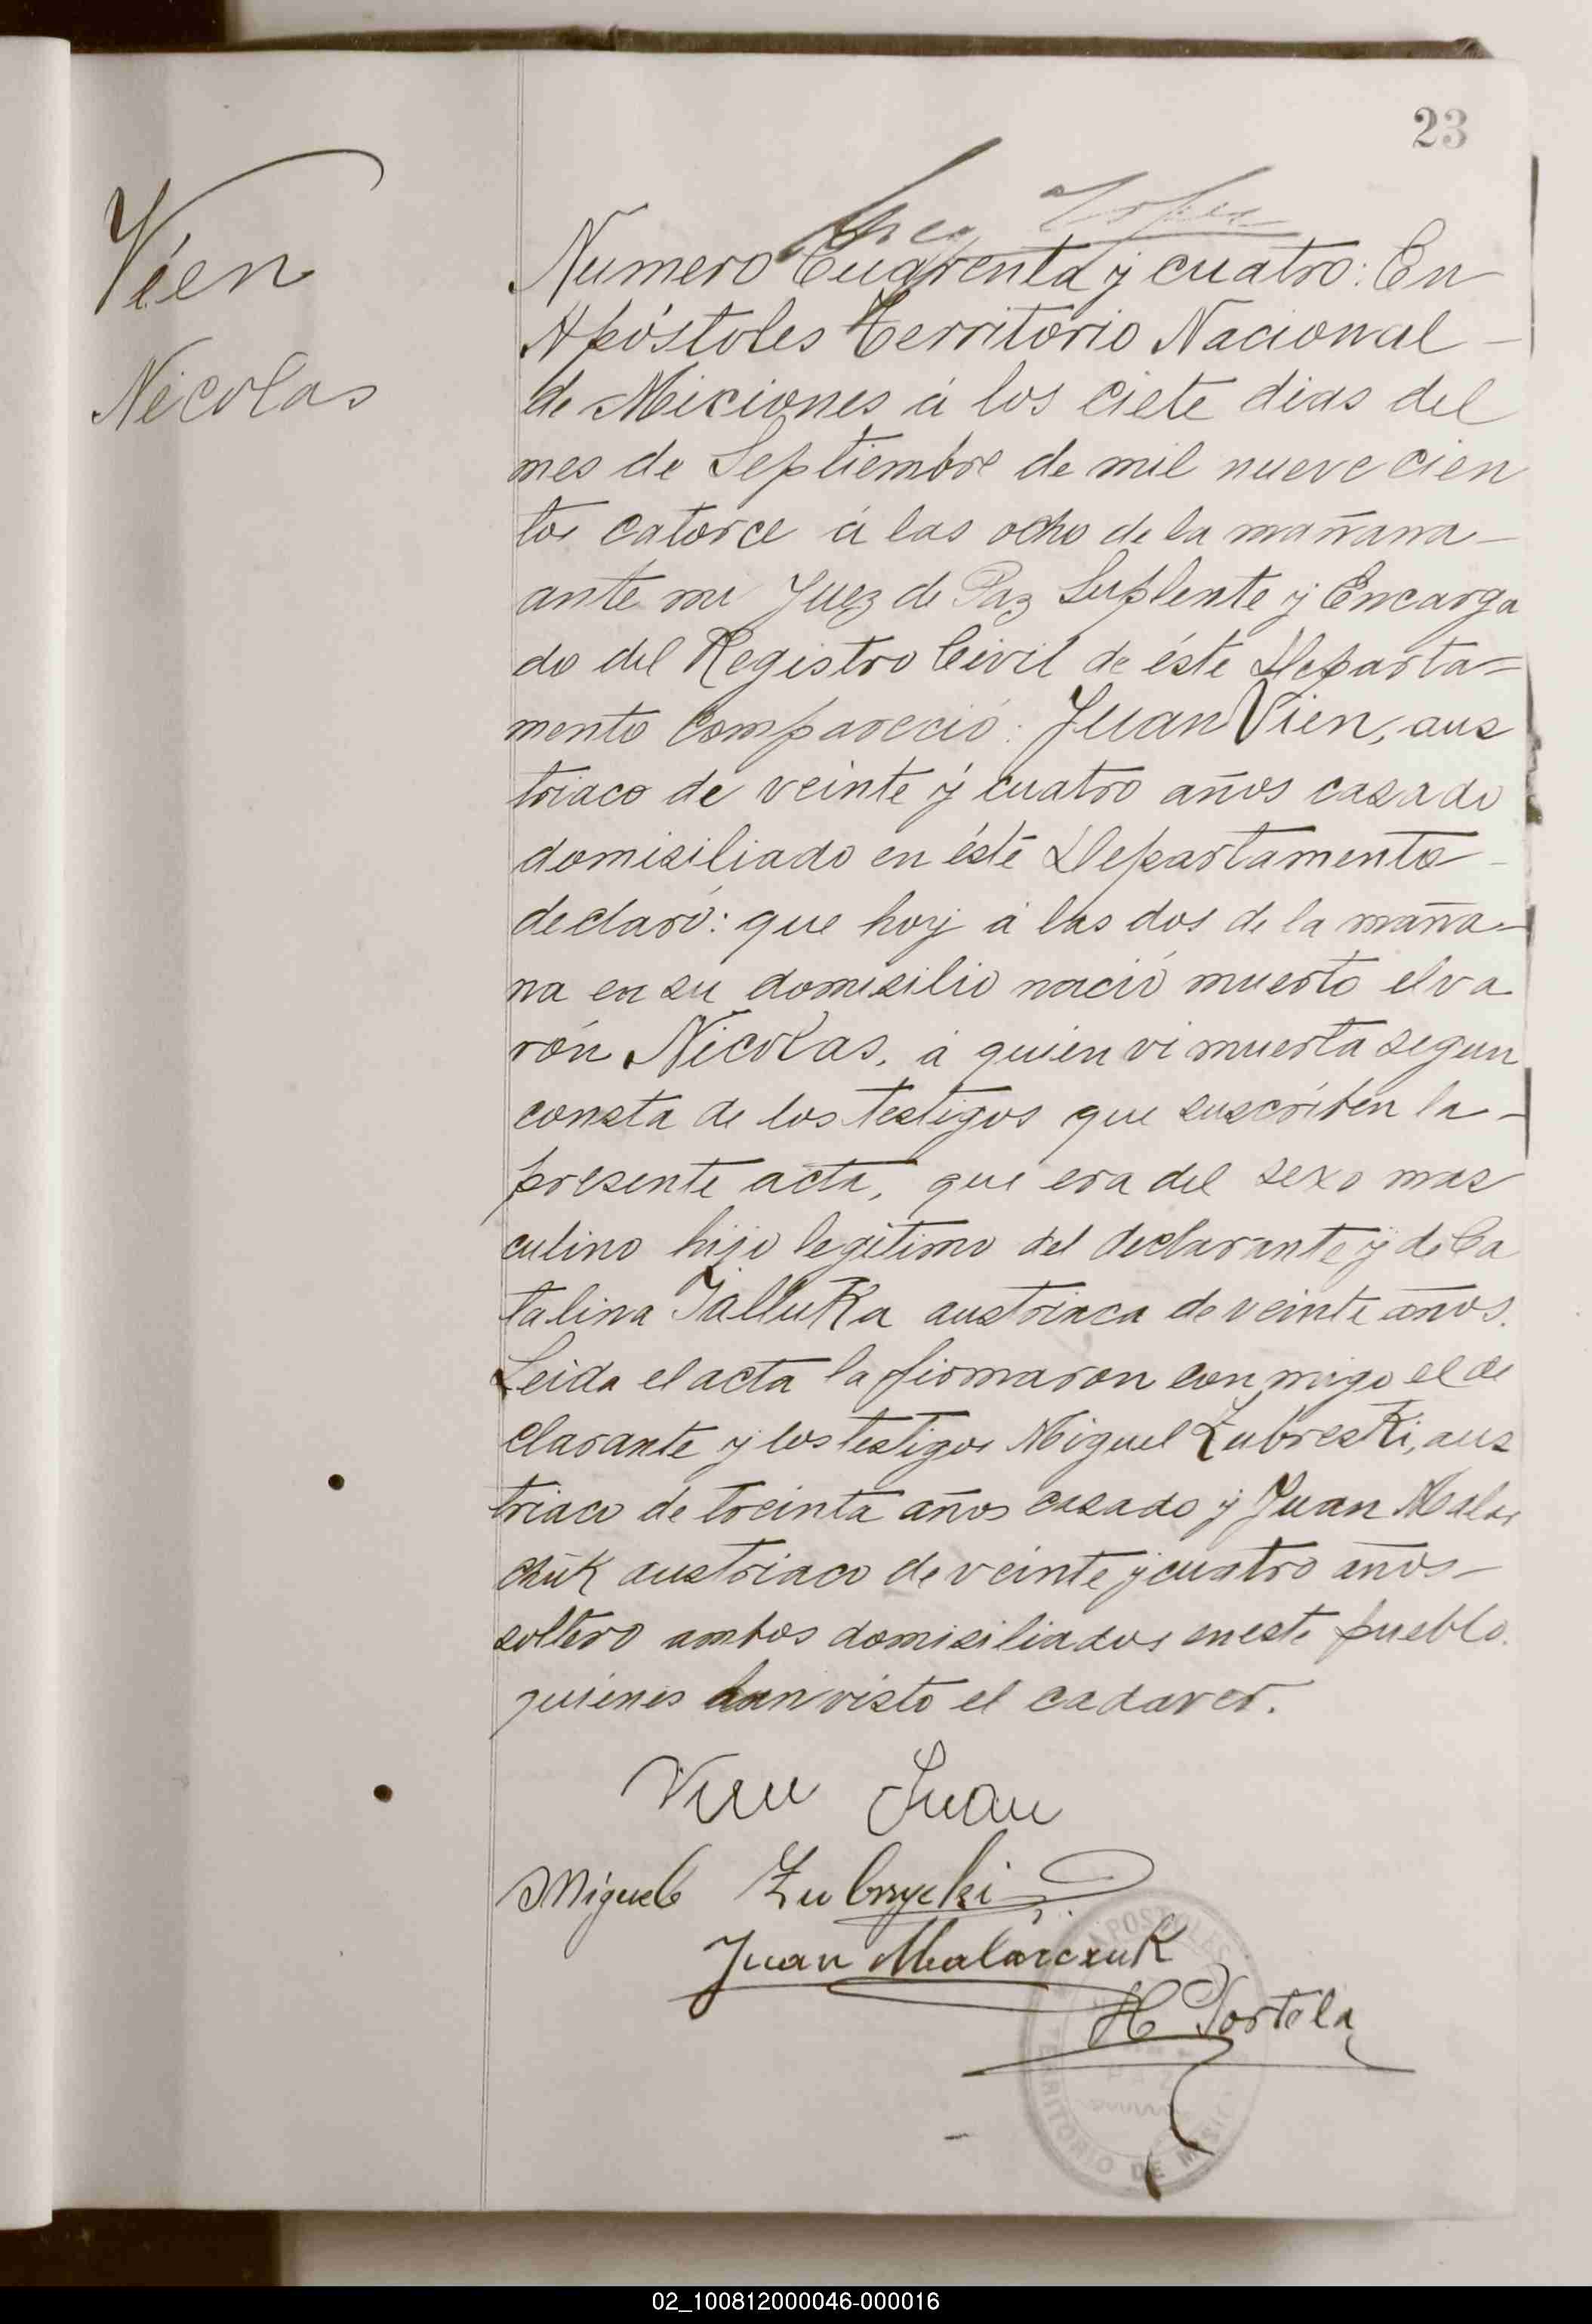 23
Vien
Nicolas
Numero Cuarenta y cuatro: En
Apóstoles Territorio Nacional
de Miciones á los ciete dias del
mes de Septiembre de mil nueve cien
tos catorce á las ocho de la mañana
ante mi Juez de Paz Suplente y Encarga
do del Registro Civil de éste Departa=
mento compareció: Juan Vien, aus
triaco de veinte y cuatro años casado
domisiliado en éste Departamento
declaró: que hoy á las dos de la maña-
na en su domisilio nació muerto el va
rón Nicolas, á quien vi muerta segun
consta de los testigos que suscriben la -
presente acta, que era del sexo mas
culino hijo legitimo del declarante y de Ca
talina Jalluka austriaca de veinte años.
Leida el acta la firmaron con migo el de
clarante y los testigos Miguel Zubreski, aus
triaco de treinta años casado y Juan Malar
chuk austriaco de veinte y cuatro años -
soltero ambos domisiliados en este pueblo.
quienes han visto el cadaver.
Vien Juan
Miguel Zubrycki
Juan Malarczuk
H Portela
APOSTOLES
TERRITORIO DE MISI
02_100812000046-000016